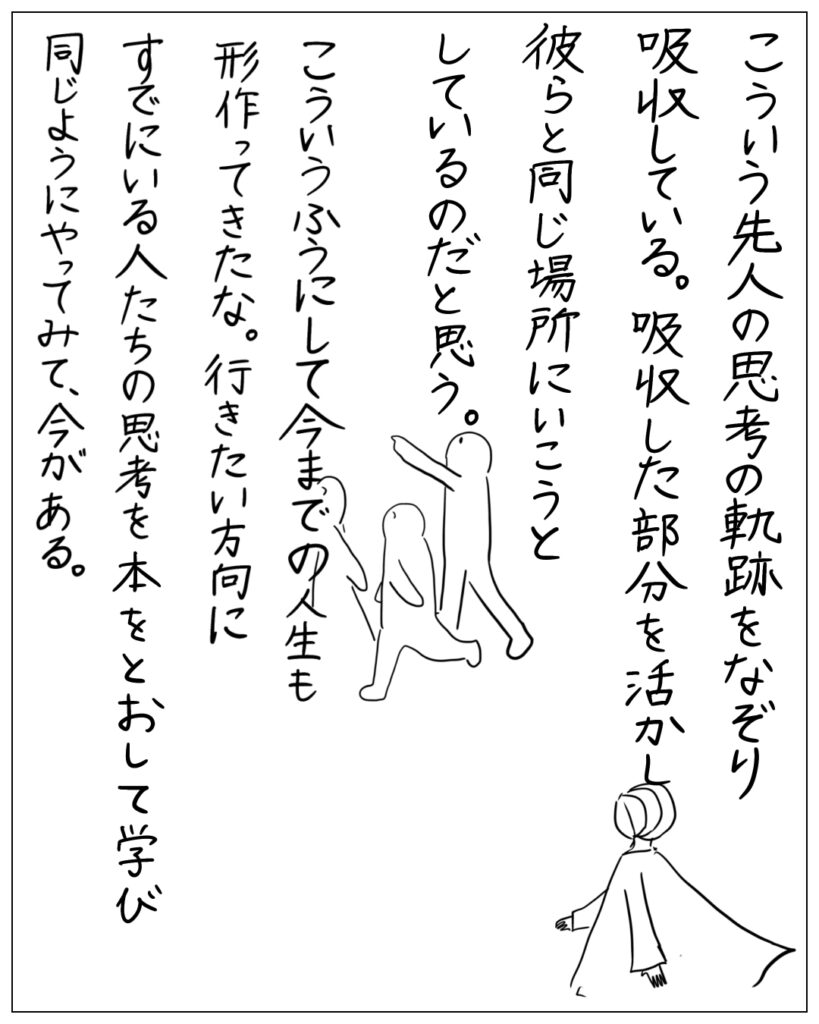 こういう先人の思考の軌跡をなぞり
吸収している。吸収した部分を活かし
彼らと同じ場所にいこうと
しているのだと思う。
こういうふうにして今までの人生も
形作ってきたな。行きたい方向に
すでにいる人たちの思考を本をとおして学び
同じようにやってみて、今がある。